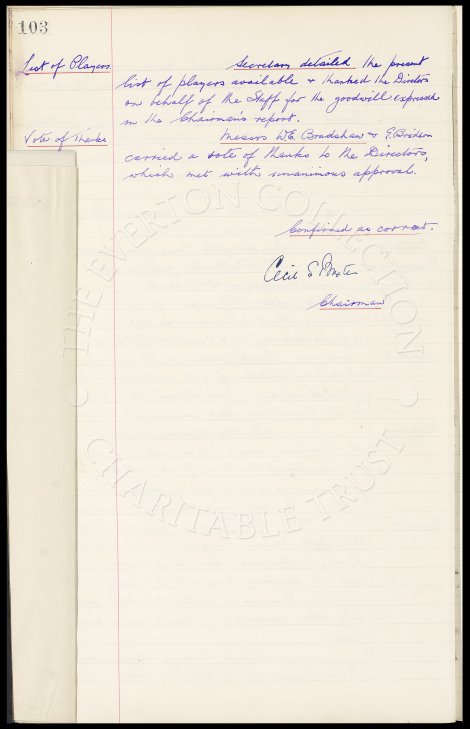 103
List of Players
Secretary detailed the present
list of players available & thanked the Directors
on behalf of the Staff for the goodwill expressed
in the Chairman's report.
Vote of Thanks
Messrs W.E. Bradshaw & E. Bridson
carried a vote of thanks to the Directors,
which met with unanimous approval.
Confirmed as correct.
Cecil S
Chairman
THE EVERTON COLLECTION
CHARITABLE TRUST